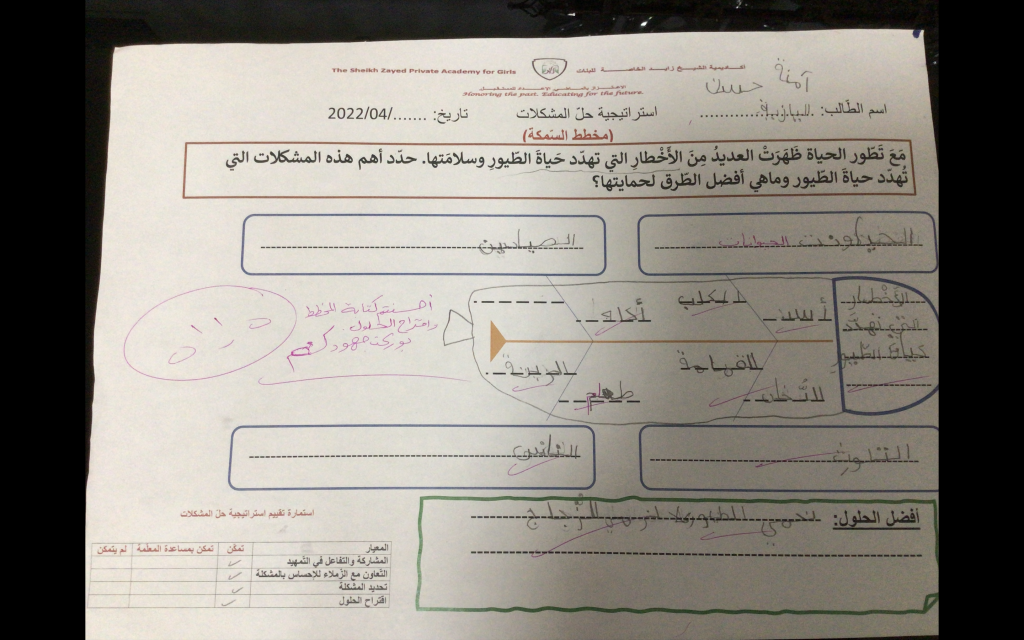 The Sheikh Zayed Private Academy for Girls
أكاديمية الشيخ زايد الخاصة للبنات
Honoring the past. Educating for the future.
آمنة حسن
اسم الطّالب:
استراتيجية حلّ المشكلات
تاريخ: ......./2022/04
(مخطط السّمكة)
مَعَ تَطَور الحياة ظَهَرَتْ العديدُ مِنَ الأَخْطارِ التي تهدّد حَياةَ الطّيورِ وسلامَتها. حدّد أهم هذه المشكلات التي
تُهدّد حياةَ الطّيور وماهي أفضل الطّرق لحمايتها؟
الحيوانات
الصيادين
الأخطار
التي تهدّد
حياة الطّيور
أسد
الكلب
أكله
القمامة
الزينة
طعام
التلوث
الناس
أحسنتم كتابة المخطط
واقتراح الحلول
بوركت جهودكم
أفضل الحلول:
نحمي الطيور
الزّجاج
استمارة تقييم استراتيجية حلّ المشكلات
المعيار تمكن تمكن بمساعدة المعلمة لم يتمكن
المشاركة والتفاعل في التّمهيد ✓
التّعاون مع الزّملاء للإحساس بالمشكلة ✓
تحديد المشكلة ✓
اقتراح الحلول ✓